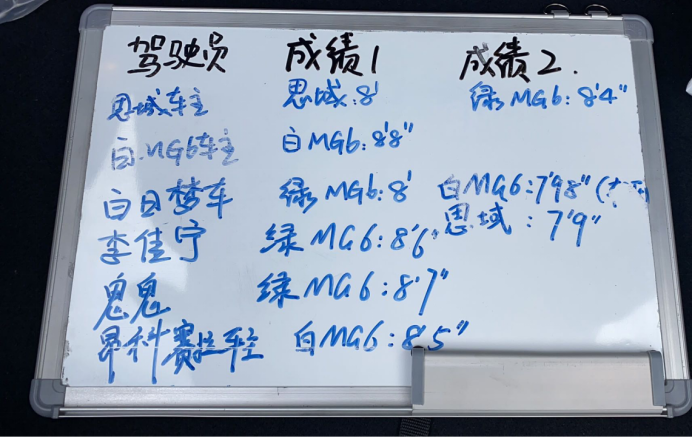 驾驶员 成绩1 成绩2.
思域车主 思域:8' 绿MG6:8'4"
白MG6车主 白MG6:8'8"
白日梦车 绿MG6:8' 白MG6:7'98"
思域:7'9"
李佳宁 绿MG6:8'6"
鬼鬼 绿MG6:8'7"
昂科赛拉车主 白MG6:8'5"